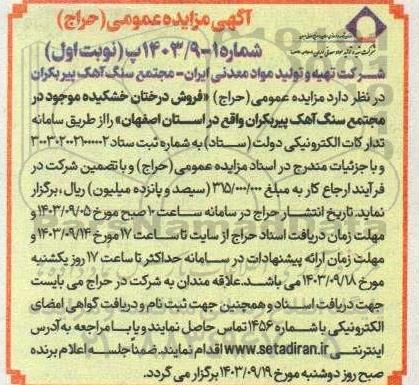 آگهی مزایده عمومی (حراج)
شماره ۱-۱۴۰۳/۹پ (نوبت اول)
شرکت تهیه و تولید مواد معدنی ایران- مجتمع سنگ آهک پیربکران
در نظر دارد مزایده عمومی (حراج) «فروش درختان خشکیده موجود در
مجتمع سنگ آهک پیربکران واقع در استان اصفهان» را از طریق سامانه
تدارکات الکترونیکی دولت (ستاد) به شماره ثبت ستاد ۳۰۰۳۰۲۰۰۲۱۰۰۰۰۰۲
و با جزئیات مندرج در اسناد مزایده عمومی (حراج) و با تضمین شرکت در
فرآیند ارجاع کار به مبلغ ۳۱۵/۰۰۰/۰۰۰ (سیصد و پانزده میلیون) ریال، برگزار
نماید. تاریخ انتشار حراج در سامانه ساعت ۱۰ صبح مورخ ۱۴۰۳/۰۹/۰۵ و
مهلت زمان دریافت اسناد حراج از سایت تا ساعت ۱۷ مورخ ۱۴۰۳/۰۹/۱۴ و
مهلت زمان ارائه پیشنهادات در سامانه حداکثر تا ساعت ۱۷ روز یکشنبه
مورخ ۱۴۰۳/۰۹/۱۸ می باشد. علاقه مندان به شرکت در حراج می بایست
جهت دریافت اسناد و همچنین جهت ثبت نام و دریافت گواهی امضای
الکترونیکی با شماره ۱۴۵۶ تماس حاصل نمایند و یا با مراجعه به آدرس
اینترنتی www.setadiran.ir اقدام نمایند. ضمناً جلسه اعلام برنده
صبح روز دوشنبه مورخ ۱۴۰۳/۰۹/۱۹ برگزار می گردد.